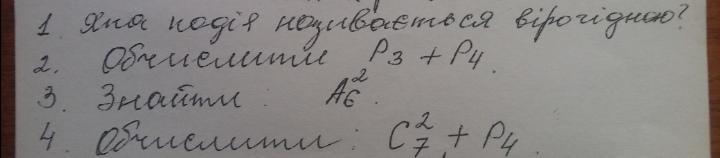 1. Яка подія називається вірогідною?
2. Обчислити P₃ + P₄.
3. Знайти: A₆².
4. Обчислити: C₇² + P₄.